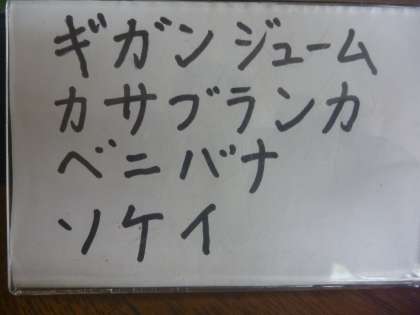 ギガンジューム
カサブランカ
ベニバナ
ソケイ